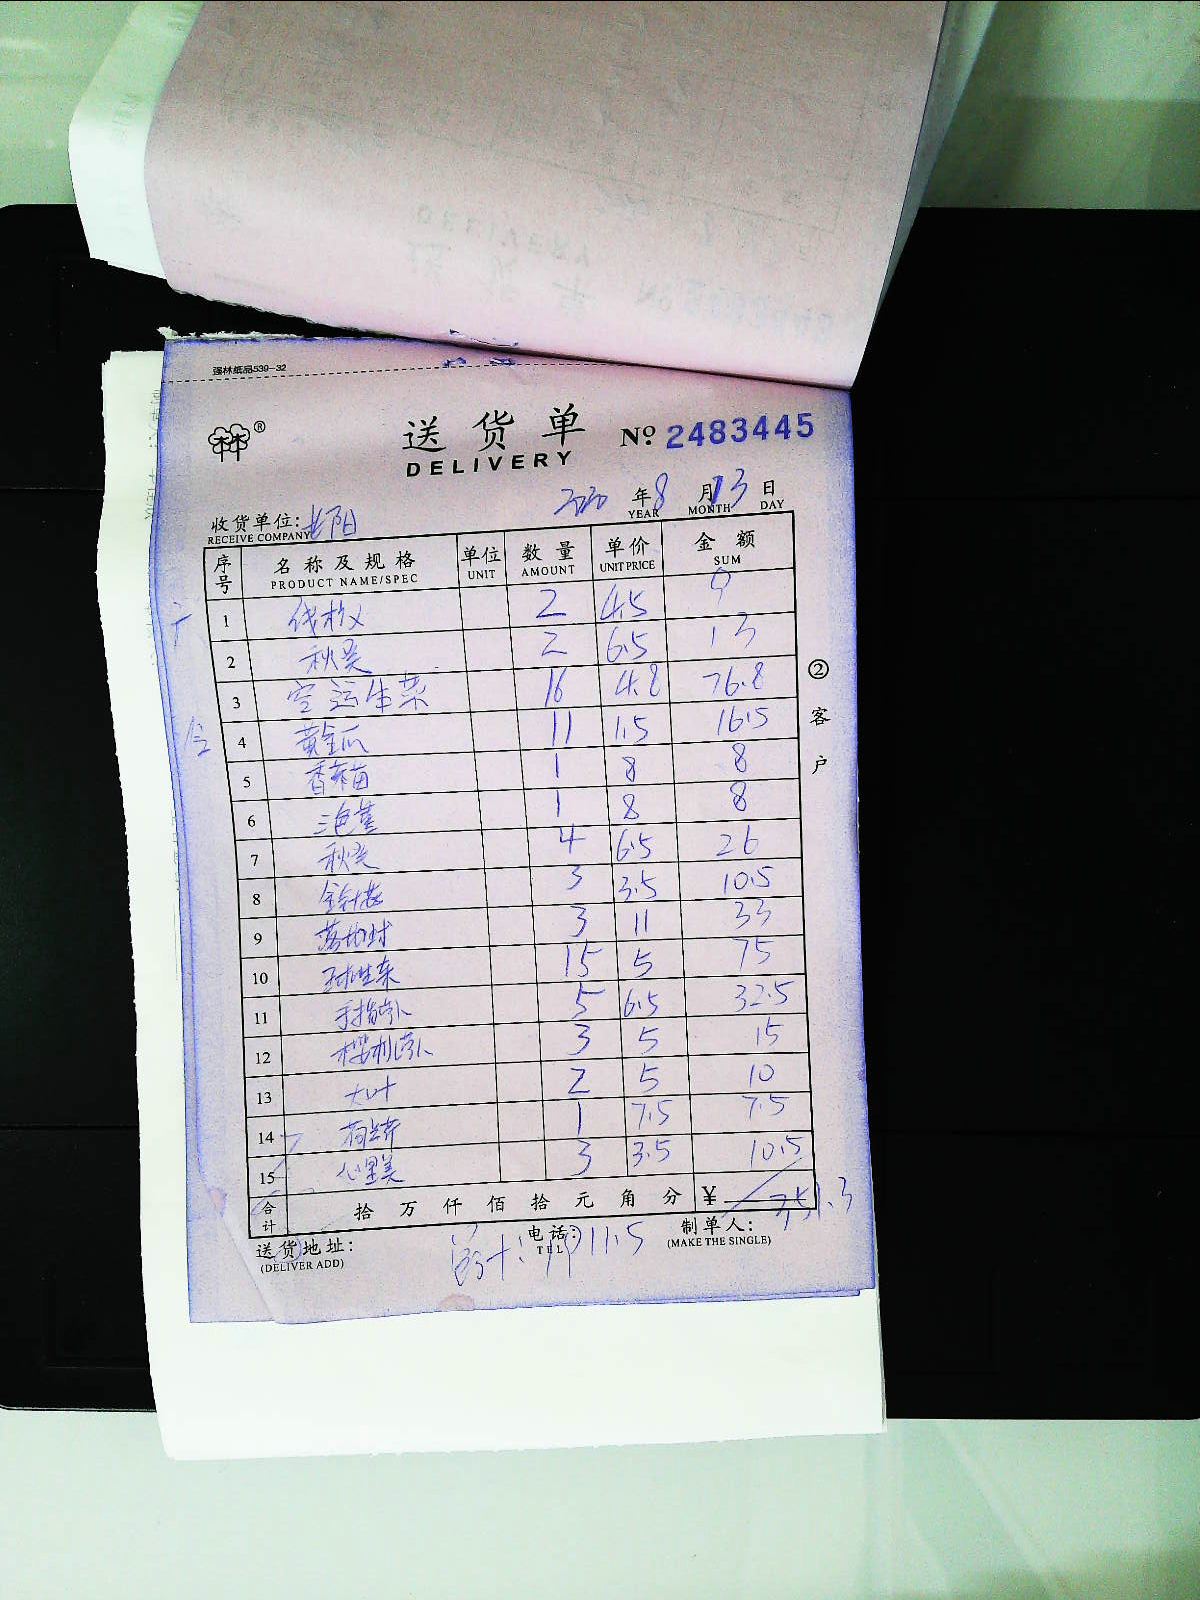 强林纸品539-32
林®
送货单 Nº 2483445
DELIVERY
2020 年 8 月 13 日
YEAR MONTH DAY
收货单位:
RECEIVE COMPANY
序号 名称及规格 单位 数量 单价 金额
PRODUCT NAME/SPEC UNIT AMOUNT UNIT PRICE SUM
1 2 4.5 9
2 秋葵 2 6.5 13
3 空运生菜 16 4.8 76.8
4 黄金瓜 11 1.5 16.5
5 1 8 8
6 三色堇 1 8 8
7 秋葵 4 6.5 26
8 金针菇 3 3.5 10.5
9 3 11 33
10 15 5 75
11 5 6.5 32.5
12 3 5 15
13 大叶 2 5 10
14 1 7.5 7.5
15 心里美 3 3.5 10.5
合计 拾万仟佰拾元角分 ¥ 351.3
送货地址: 电话: 制单人:
(DELIVER ADD) TEL (MAKE THE SINGLE)
11.5
②客户